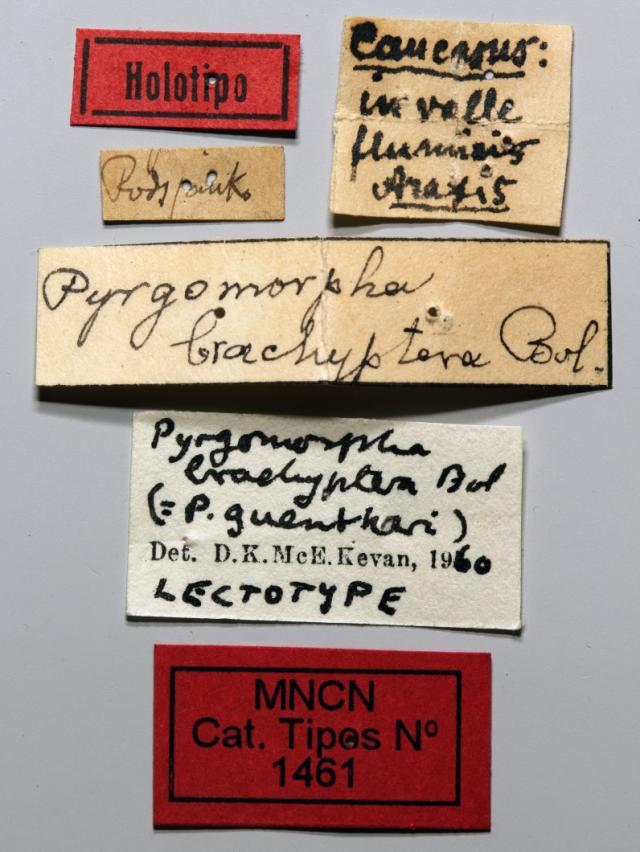 Holotipo
Caucasus:
in valle
fluminis
Araxis
Pyrgomorpha
brachyptera Bol.
Pyrgomorpha
brachyptera Bol
(= P. guentheri)
Det. D.K.McE.Kevan, 1960
LECTOTYPE
MNCN
Cat. Tipos Nº
1461